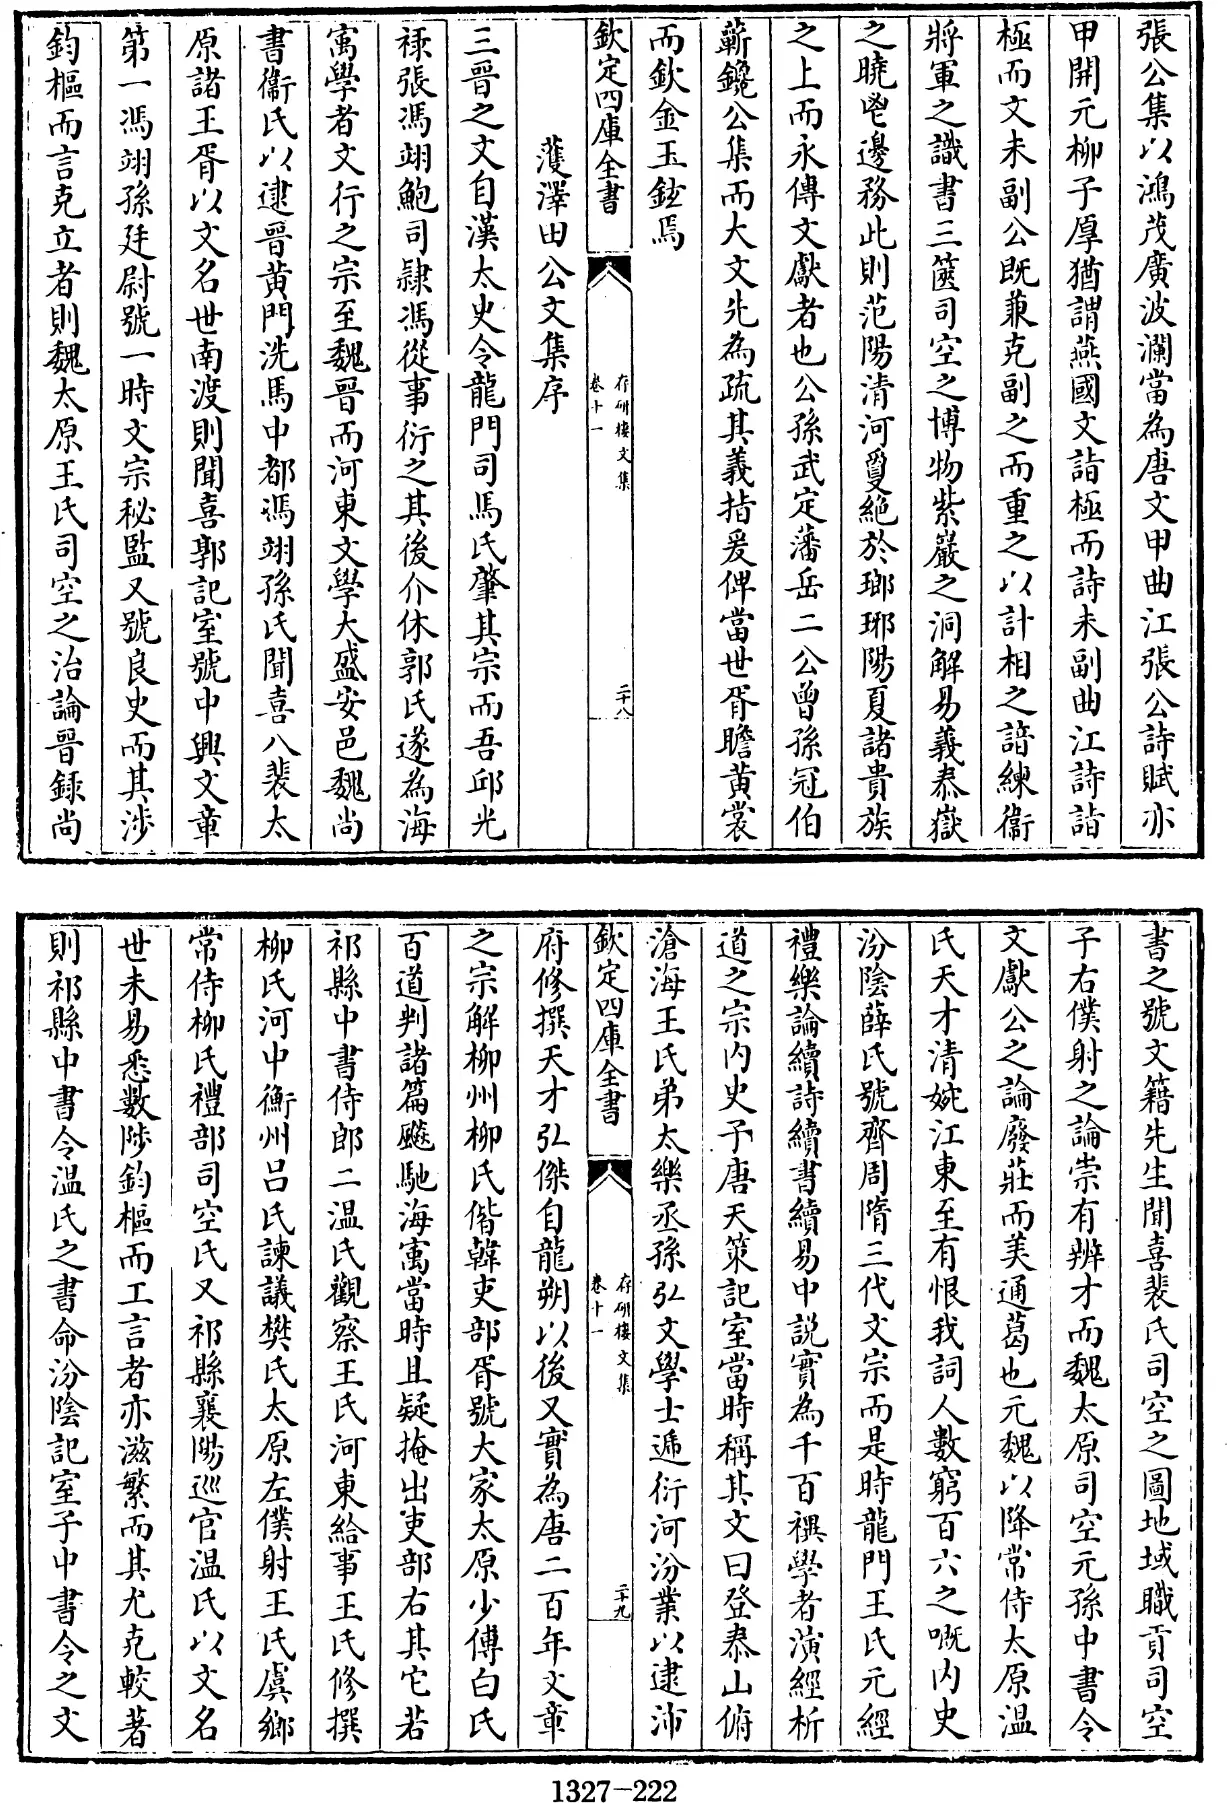 張公集以鴻茂廣波瀾當為唐文甲曲江張公詩賦亦
甲開元柳子厚猶謂燕國文詣極而詩未副曲江詩詣
極而文未副公既兼克副之而重之以計相之諳練衞
將軍之識書三篋司空之博物紫巖之洞解易義泰嶽
之曉邊務此則范陽清河敻絶於瑯琊陽夏諸貴族
之上而永傳文獻者也公孫武定藩岳二公曾孫冠伯
蘄鑱公集而大文先為疏其義指爰俾當世胥瞻黄裳
而欽金玉鉉焉
欽定四庫全書
存研樓文集
卷十一
二十八
濩澤田公文集序
三晉之文自漢太史令龍門司馬氏肇其宗而吾邱光
祿張馮翊鮑司隷馮從事衍之其後介休郭氏遂為海
寓學者文行之宗至魏晉而河東文學大盛安邑魏尚
書衞氏以逮晉黄門洗馬中都馮翊孫氏聞喜八裴太
原諸王胥以文名世南渡則聞喜郭記室號中興文章
第一馮翊孫廷尉號一時文宗秘監又號良史而其涉
鈞樞而言克立者則魏太原王氏司空之治論晉録尚
書之號文籍先生聞喜裴氏司空之圖地域職貢司空
子右僕射之論崇有辨才而魏太原司空元孫中書令
文獻公之論廢莊而美通葛也元魏以降常侍太原温
氏天才清婉江東至有恨我詞人數窮百六之嘅内史
汾陰薛氏號齊周隋三代文宗而是時龍門王氏元經
禮樂論續詩續書續易中説實為千百禩學者演經析
道之宗内史子唐天策記室當時稱其文曰登泰山俯
滄海王氏弟太樂丞孫弘文學士遞衍河汾業以逮沛
欽定四庫全書
存研樓文集
卷十一
二十九
府修撰天才弘傑自龍朔以後又實為唐二百年文章
之宗解柳州柳氏偕韓吏部胥號大家太原少傅白氏
百道判諸篇飈馳海寓當時且疑掩出吏部右其它若
祁縣中書侍郎二温氏觀察王氏河東給事王氏修撰
柳氏河中衡州吕氏諫議樊氏太原左僕射王氏虞鄉
常侍柳氏禮部司空氏又祁縣襄陽巡官温氏以文名
世未易悉數陟鈞樞而工言者亦滋繁而其尤克較著
則祁縣中書令温氏之書命汾陰記室子中書令之文
1327-222